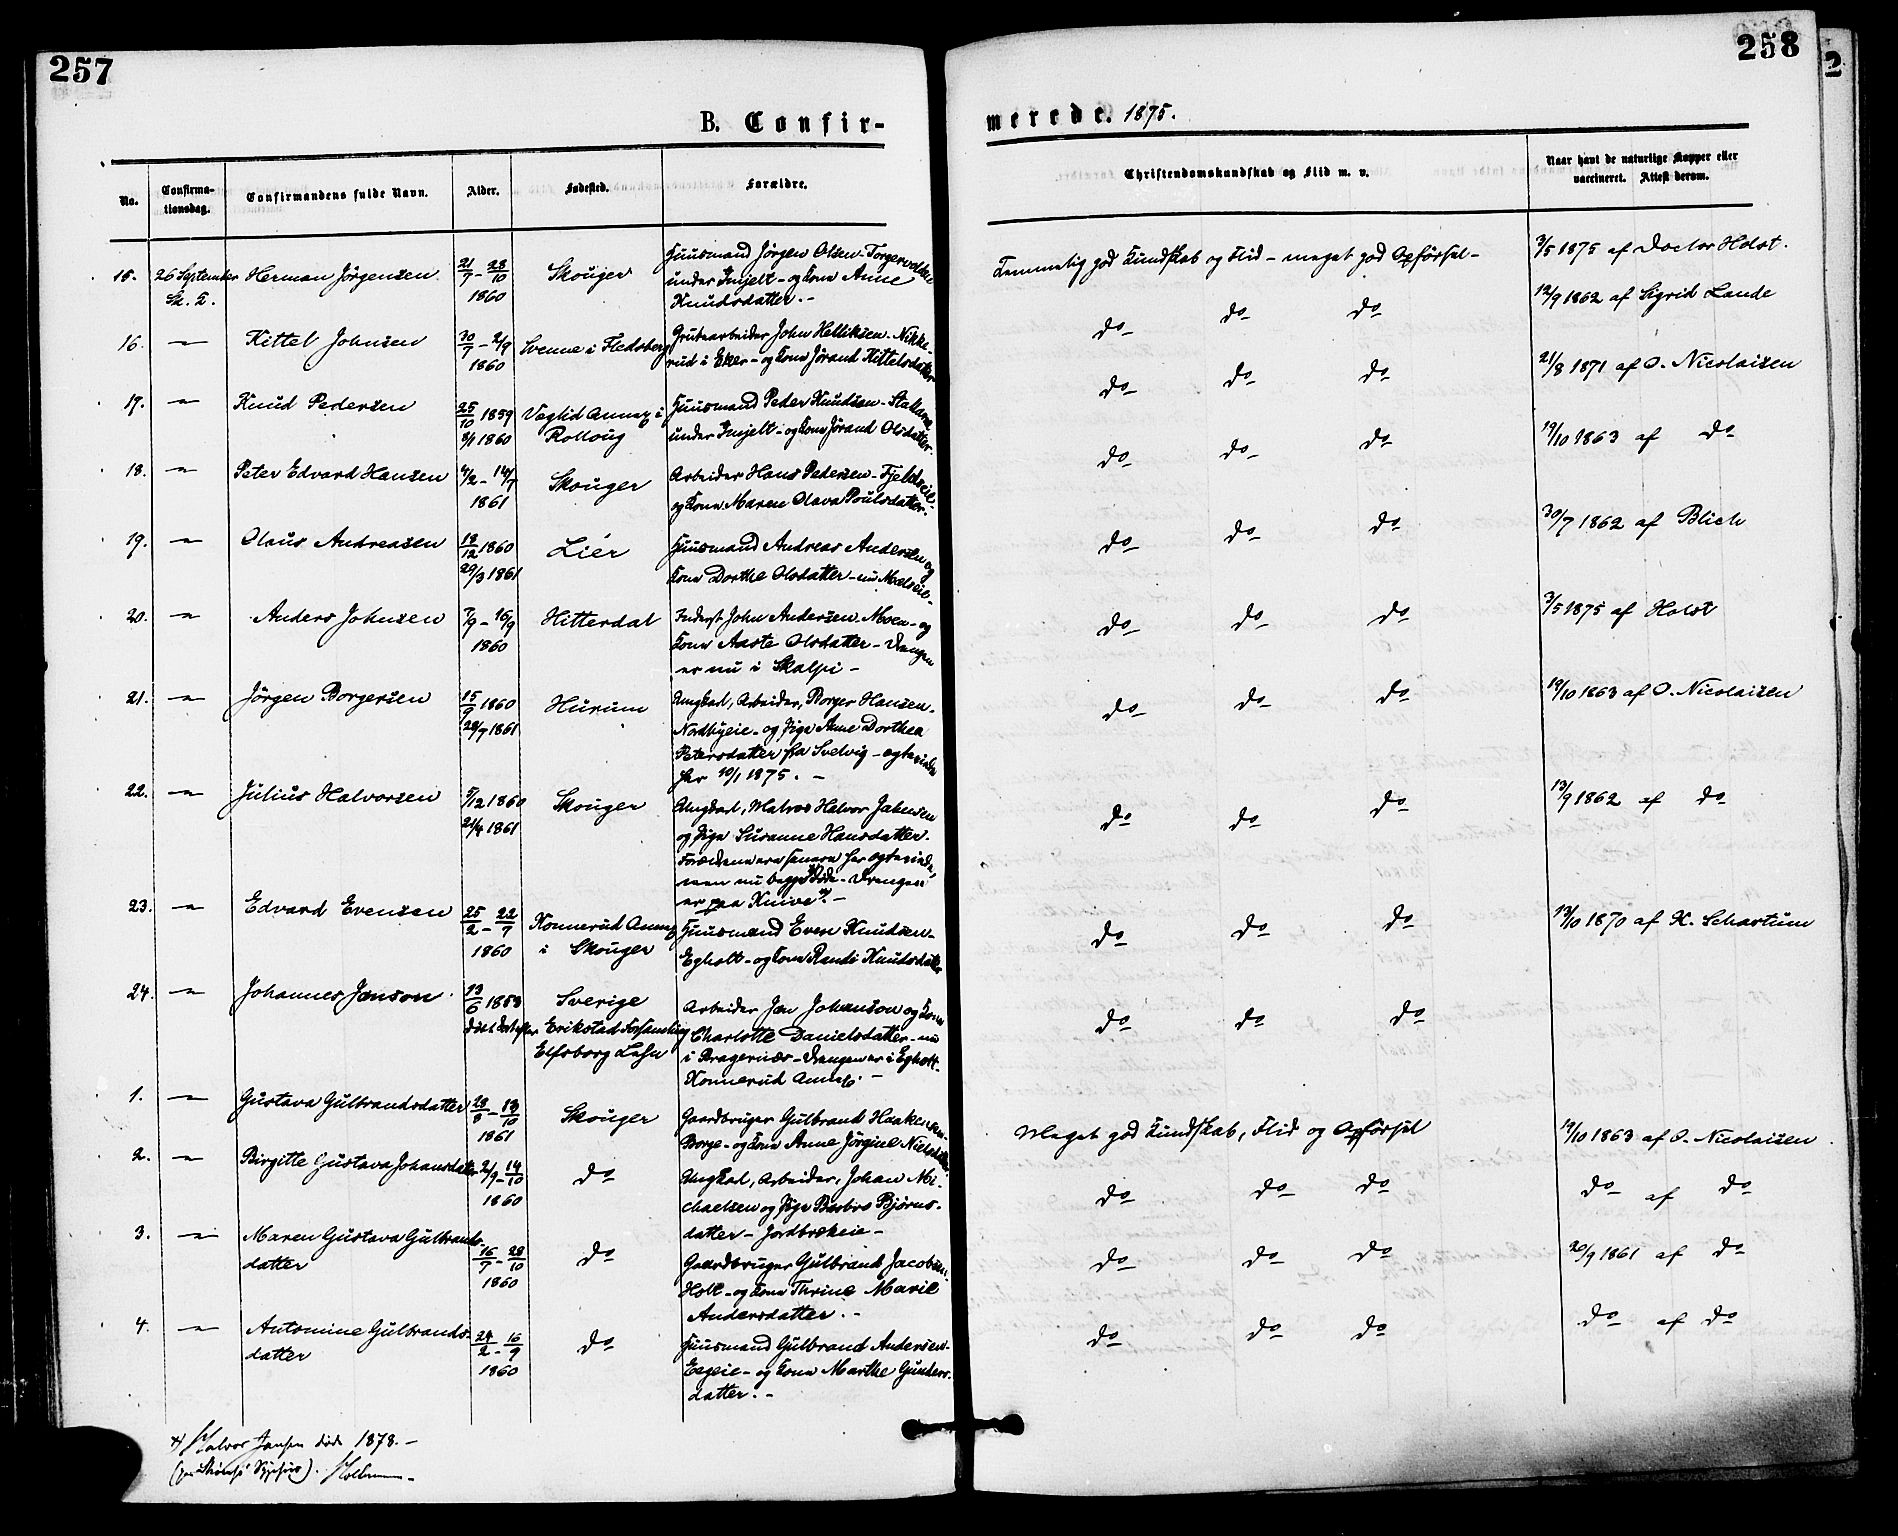 257
258
B. Confir-
merede. 1875.
No.
Confirma-
tionsdag.
Confirmandens fulde Navn.
Alder.
Fødested.
Forældre.
Christendomskundskab og Flid m. v.
Naar havt de naturlige Kopper eller
vaccineret. Attest derom.
15. 26 September Herman Jörgensen 21/7 - 28/10 Skouger Huusmand Jörgen Olsen
1860 under Imjelt - og Kone Anne
Knudsdatter. -
Temmelig god Kundskab og Flid - meget god Opförsel -
3/5 1875 af Doctor Holst.
16. — Kittel Johnsen 30/7 - 2/9 Svenne i Flesberg Grubearbeider John Helliksen - Nikke-
1860 rud i Eker - og Kone Jörand Kittelsdatter
do do do
12/9 1862 af Sigrid Lande
17. — Knud Pedersen 25/10 1859 Veglid Annex i Huusmand Peder Knudsen -
8/1 1860 Rolloug under Imjelt - og Kone Jörand Olsdatter
do do do
21/8 1871 af O. Nicolaisen
18. — Peter Edvard Hansen 4/2 - 14/7 Skouger Arbeider Hans Pedersen - Fjeldseie
1861 og Kone Maren Olava Poulsdatter.
do do do
19/10 1863 af do
19. — Olaus Andreasen 13/12 1860 Lier Huusmand Andreas Andersen og
29/3 1861 Kone Dorthe Olsdatter - nu
do do do
30/7 1862 af Blich
20. — Anders Johnsen 7/9 - 16/9 Hitterdal Inderst John Andersen Moen - og
1860 Kone Aaste Olsdatter - Drengen
er nu i Skalpi -
do do do
3/5 1875 af Holst
21. — Jörgen Borgersen 15/9 1860 Hurum Ungkarl, Arbeider, Borger Hansen.
28/7 1861 Nordbyeie - og Pige Anne Dorthea
Petersdatter fra Svelvig - egteviede
her 10/1 1875. -
do do do
19/10 1863 af O. Nicolaisen
22. — Julius Halvorsen 5/12 1860 Skouger Ungkarl, Matros Halvor Jahnsen
21/4 1861 og Pige Susanne Hansdatter.
Forældrene ere senere her egteviede,
men nu begge døde - Drengen
er paa Knive x). -
do do do
13/9 1862 af do
23. — Edvard Evensen 25/2 - 22/7 Konnerud Annex Huusmand Even Knudsen -
1860 i Skouger Egholt - og Kone Randi Knudsdatter
do do do
13/10 1870 af K. Schartum
24. — Johannes Janson 13/6 1853 Sverige Arbeider Jan Johanson og Kone
Erikstad Forsamling Charlotte Danielsdatter - nu
Elfsborg Lehn i Bragernæs - Drengen er i Egholt -
Konnerud Annex. -
do do do
1. — Gustava Gulbrandsdatter 28/8 - 13/10 Skouger Gaardbruger Gulbrand Haakensen
1861 Borge - og Kone Anne Jörgine Nielsdatter
Meget god Kundskab, Flid og Opförsel
19/10 1863 af O. Nicolaisen
2. — Birgitte Gustava Johansdatter 2/9 - 14/10 do Ungkarl, Arbeider, Johan Mi-
1860 chaelsen og Pige Barbro Bjørns-
datter - Jordbrekeie -
do do do
do af do
3. — Maren Gustava Gulbrands- 16/7 - 28/10 do Gaardbruger Gulbrand Jacobsen
datter 1860 Holt - og Kone Thrine Marie
Andersdatter. -
do do do
20/9 1861 af do
4. — Antomine Gulbrands- 24/2 - 16/9 do Huusmand Gulbrand Andersen -
datter 1860 Eegeie - og Kone Marthe Gunders-
datter. -
do do do
do af do
x) Halvor Jansen døde 1878. -